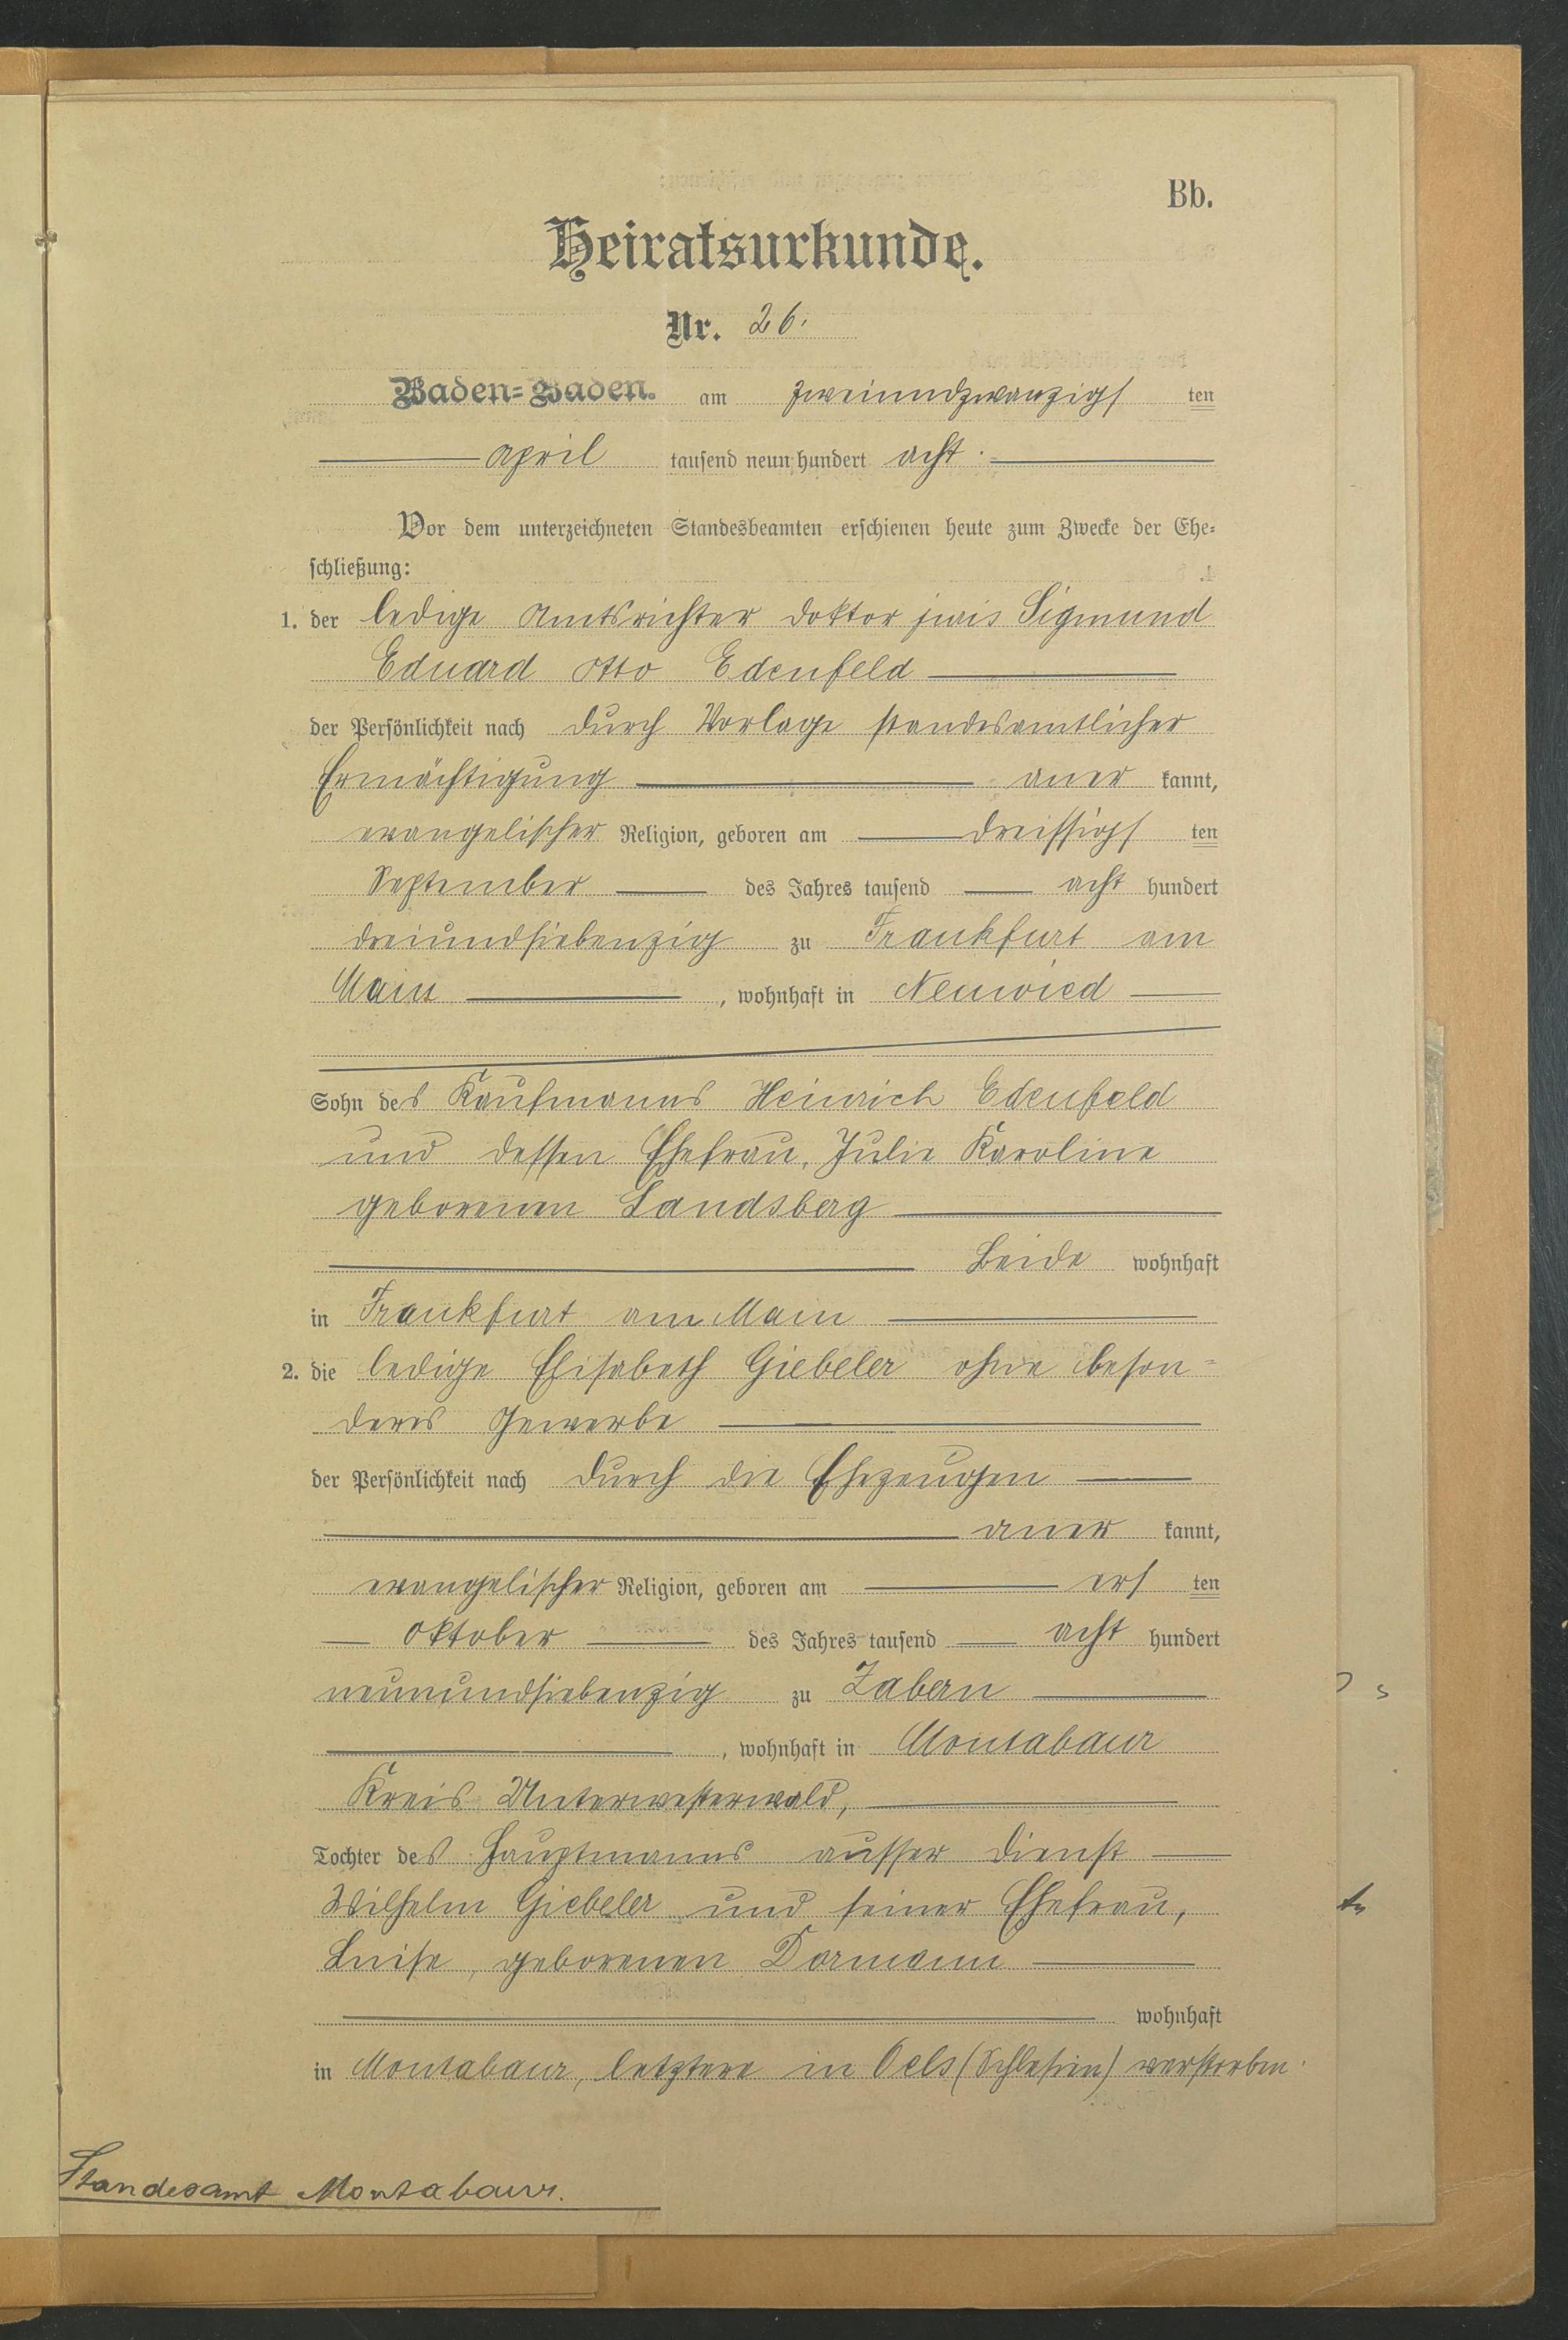 Bb.
Heiratsurkunde.
Nr. 26.
Baden-Baden. am zweiundzwanzigs ten
April tausend neun hundert acht.
Vor dem unterzeichneten Standesbeamten erschienen heute zum Zwecke der Ehe-
schließung:
1. der ledige Amtsrichter Doktor juris Sigmund
Eduard Otto Edenfeld
der Persönlichkeit nach durch Vorlage standesamtlicher
Ermächtigung aner kannt,
evangelischer Religion, geboren am dreissigs ten
September des Jahres tausend acht hundert
dreiundsiebenzig zu Frankfurt am
Main, wohnhaft in Neuwied
Sohn des Kaufmanns Heinrich Edenfeld
und dessen Ehefrau, Julie Karoline
geborenen Landsberg
Beide wohnhaft
in Frankfurt am Main
2. die ledige Elisabeth Giebeler ohne beson-
deres Gewerbe
der Persönlichkeit nach durch die Ehezeugen
aner kannt,
evangelischer Religion, geboren am ers ten
Oktober des Jahres tausend acht hundert
neunundsiebenzig zu Zabern
, wohnhaft in Montabaur
Kreis Unterwesterwald,
Tochter des Hauptmanns ausser Dienst
Wilhelm Giebeler und seiner Ehefrau,
Luise, geborenen Dormann
wohnhaft
in Montabaur, letztere in Oels (Schlesien) verstorben.
Standesamt Montabaur.